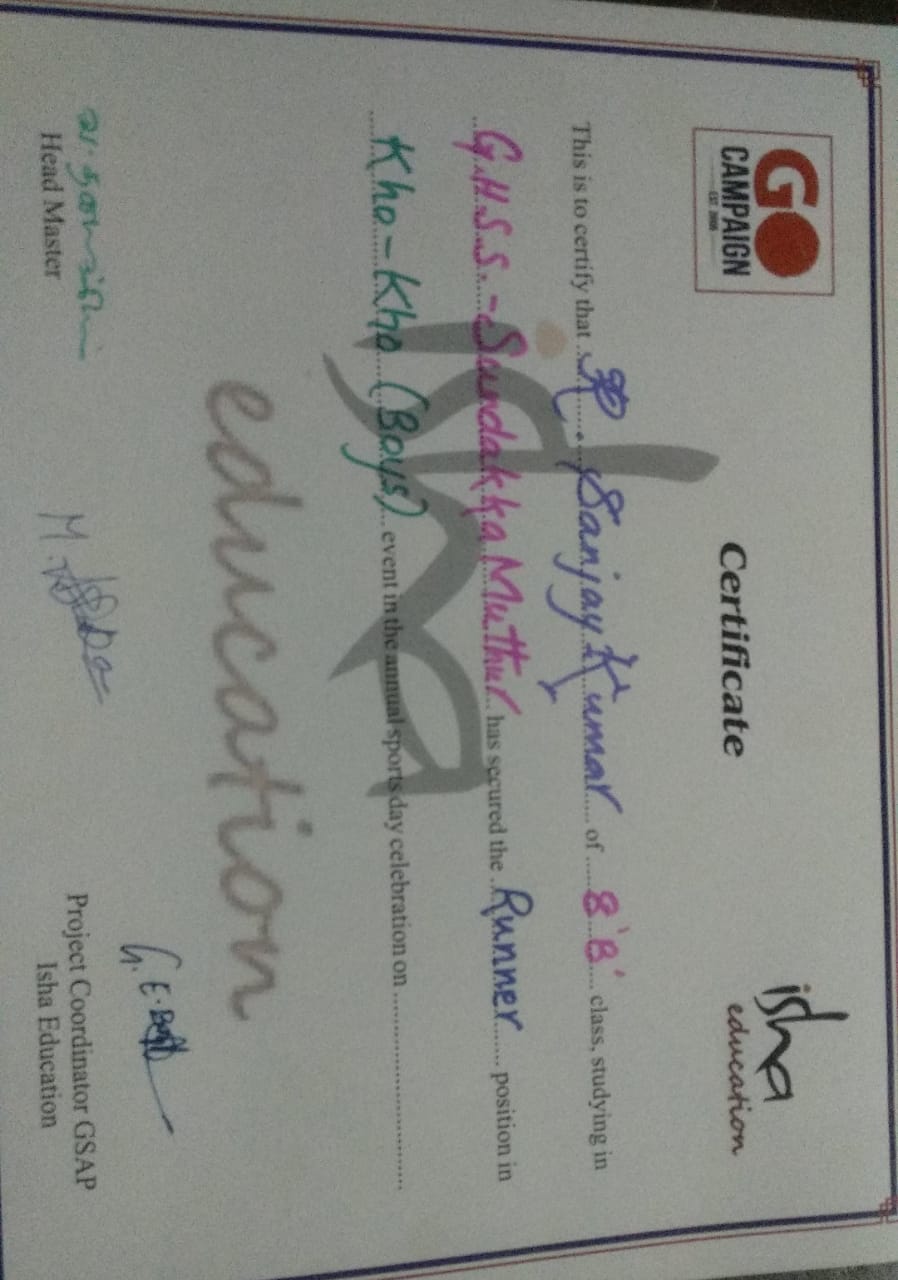 GO
CAMPAIGN
EST. 2006
isha
education
Certificate
This is to certify that ..R. Sanjay Kumar..... of .....8 'B'.... class, studying in
..G.H.S.S.-Sundakka Muthur.. has secured the ..Runner...... position in
....Kho-Kho (Boys)...event in the annual sports day celebration on ....................................
isha
education
Head Master
Project Coordinator GSAP
Isha Education